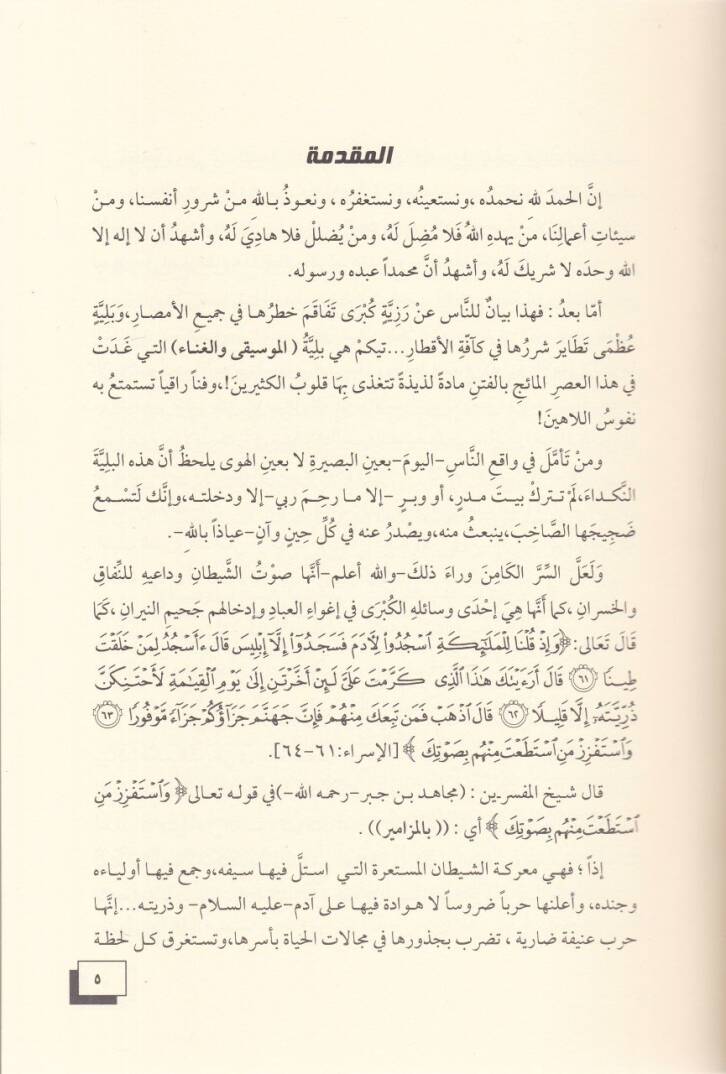 المقدمة
إنَّ الحمدَ لله نحمدُه ،ونستعينُه، ونستغفرُه ، ونعوذُ بالله منْ شرورِ أنفسنا، ومنْ
سيئاتِ أعمالِنَا، منْ يهدهِ اللهُ فَلا مُضِلَ لَهُ، ومنْ يُضللْ فلا هاديَ لَهُ، وأشهدُ أن لا إله إلا
الله وحدَه لا شريكَ لَهُ، وأشهدُ أنَّ محمداً عبده ورسوله.
أمّا بعدُ : فهذا بيانٌ للنَّاس عنْ رَزِيَّةٍ كُبْرَى تَفَاقَمَ خطرُها في جميعِ الأمصارِ،وَبَلِيَّةٍ
عُظْمَى تَطَايَرَ شررُها في كافّةِ الأقطارِ...تيكمْ هي بليَّةُ ( الموسيقى والغناء ) التي غَدَتْ
في هذا العصرِ المائجِ بالفتنِ مادةً لذيذةً تتغذى بِهَا قلوبُ الكثيرينَ!،وفناً راقياً تستمتعُ به
نفوسُ اللاهينَ!
ومنْ تَأمَّلَ في واقعِ النَّاسِ-اليومَ-بعينِ البصيرةِ لا بعينِ الهوى يلحظُ أنَّ هذه البليَّةَ
النَّكداءَ،لَمْ تتركْ بيتَ مدرٍ، أو وبرٍ -إلا ما رحِمَ ربي-إلا ودخلته،وإنَّك لَتسْمعُ
ضَجِيجَها الصَّاخِبَ،ينبعثُ منه،ويصْدرُ عنه في كُلِّ حِينٍ وآنٍ-عياذاً باللهِ-.
وَلَعَلَّ السِّرَّ الكَامِنَ وراءَ ذلكَ-والله أعلم-أنَّها صوْتُ الشَّيطانِ وداعيه للنِّفاقِ
والخسرانِ ،كما أنَّها هِيَ إحْدَى وسائلهِ الكُبْرَى في إغواءِ العبادِ وإدخالهم جَحيمِ النيرانِ ،كَمَا
قَالَ تَعَالَى:﴿وَإِذْ قُلْنَا لِلْمَلَٰٓئِكَةِ ٱسْجُدُوا۟ لِءَادَمَ فَسَجَدُوٓا۟ إِلَّآ إِبْلِيسَ قَالَ ءَأَسْجُدُ لِمَنْ خَلَقْتَ
طِينًا ٦١ قَالَ أَرَءَيْتَكَ هَٰذَا ٱلَّذِى كَرَّمْتَ عَلَىَّ لَئِنْ أَخَّرْتَنِ إِلَىٰ يَوْمِ ٱلْقِيَٰمَةِ لَأَحْتَنِكَنَّ
ذُرِّيَّتَهُۥٓ إِلَّا قَلِيلًا ٦٢ قَالَ ٱذْهَبْ فَمَن تَبِعَكَ مِنْهُمْ فَإِنَّ جَهَنَّمَ جَزَآؤُكُمْ جَزَآءً مَّوْفُورًا ٦٣
وَٱسْتَفْزِزْ مَنِ ٱسْتَطَعْتَ مِنْهُم بِصَوْتِكَ ﴾ [الإسراء:٦١-٦٤].
قال شيخ المفسرين : (مجاهد بن جبر-رحمه الله-)في قوله تعالى﴿ وَٱسْتَفْزِزْ مَنِ
ٱسْتَطَعْتَ مِنْهُم بِصَوْتِكَ ﴾ أي : (( بالمزامير)) .
إذاً ؛ فهي معركة الشيطان المستعرة التي استلَّ فيها سيفه،وجمع فيها أولياءه
وجنده، وأعلنها حرباً ضروساً لا هوادة فيها على آدم-عليه السلام- وذريته...إنَّها
حرب عنيفة ضارية ، تضرب بجذورها في مجالات الحياة بأسرها،وتستغرق كل لحظة
٥